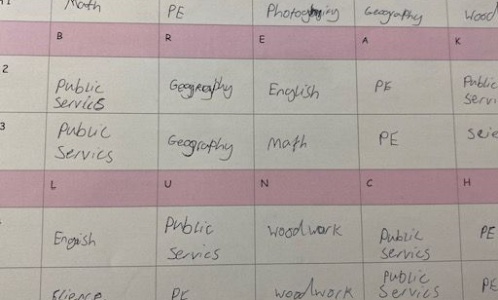 Math PE Photography Geography Wood
B R E A K
2 Public Servics Geography English PE Public Servi
3 Public Servics Geography Math PE Scie
L U N C H
Engish Public Servics Woodwork Public Servics PE
Science PE Woodwork Public Servics PE